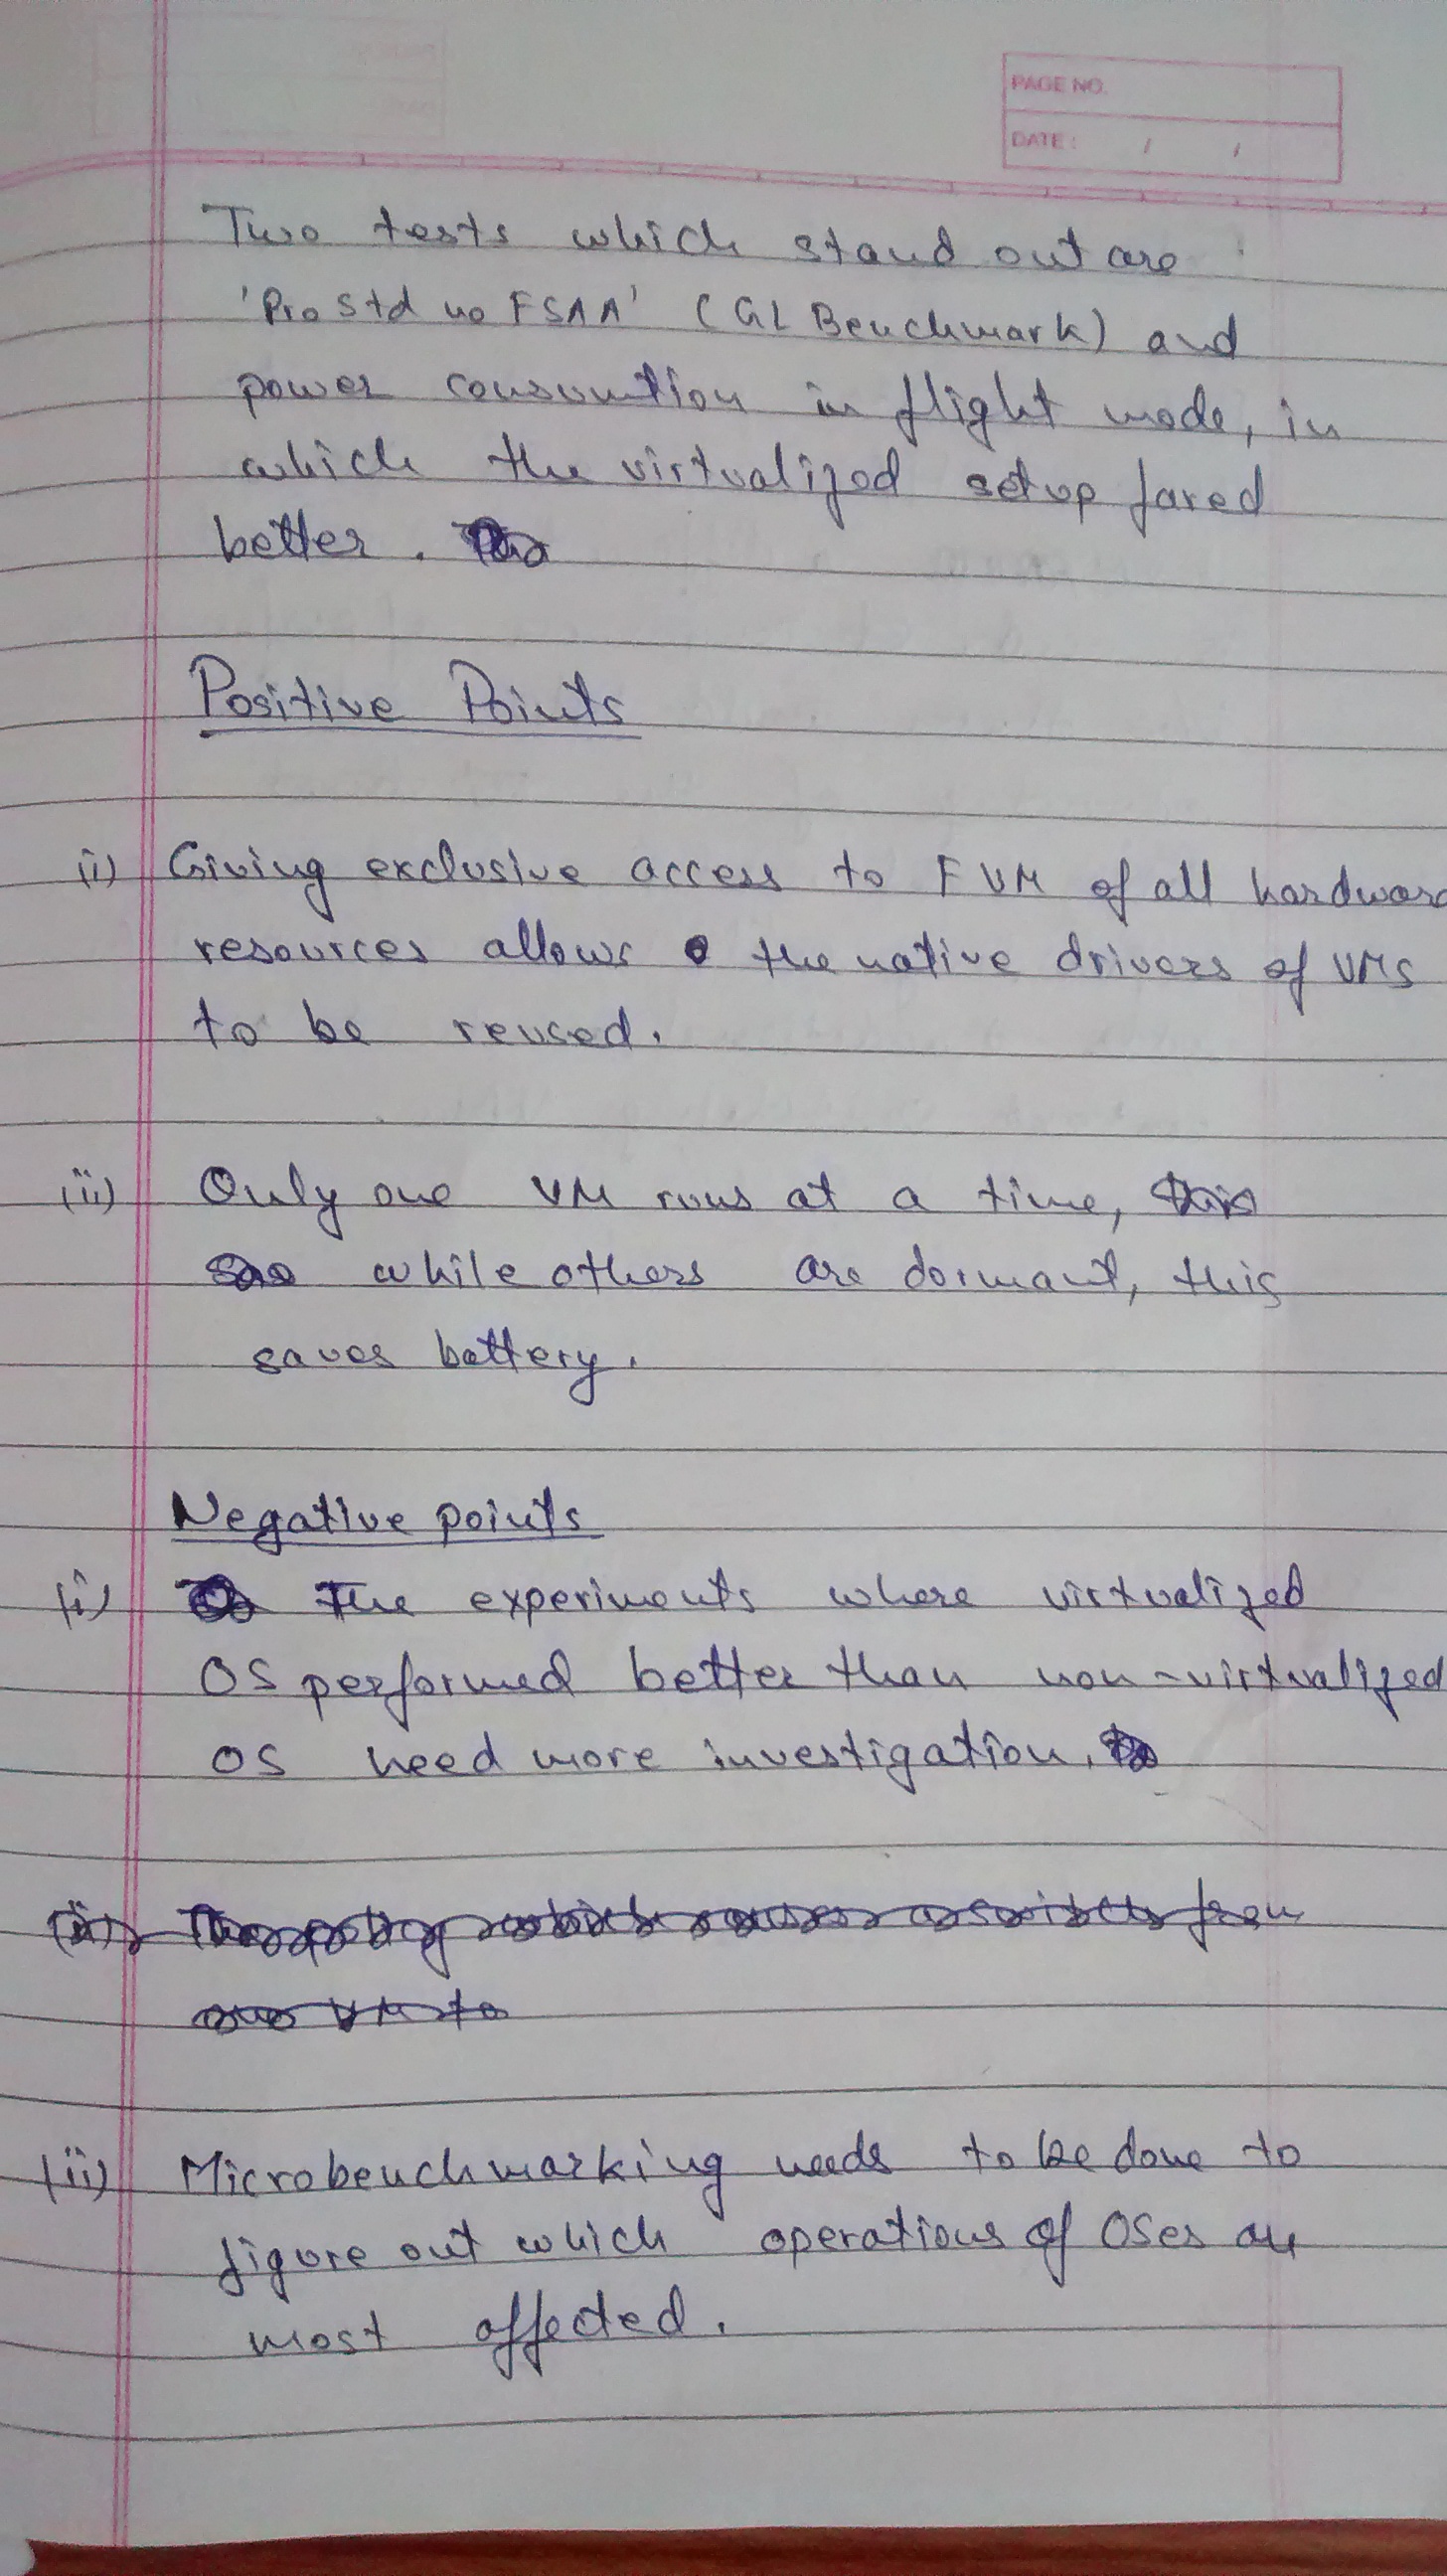 PAGE NO.
DATE : / /
Two tests which stand out are
'Pro Std no FSAA' (GL Benchmark) and
power consumtion in flight mode, in
which the virtualized setup fared
better.
Positive Points
(i) Giving exclusive access to FVM of all hardware
resources allows the native drivers of VMs
to be reused.
(ii) Only one VM runs at a time, this
while others are dormant, this
saves battery.
Negative points
(i) The experiments where virtualized
OS performed better than non-virtualized
OS need more investigation.
(ii) The policy which causes a switch from
one VM to
(ii) Microbenchmarking needs to be done to
figure out which operations of OSes are
most affected.